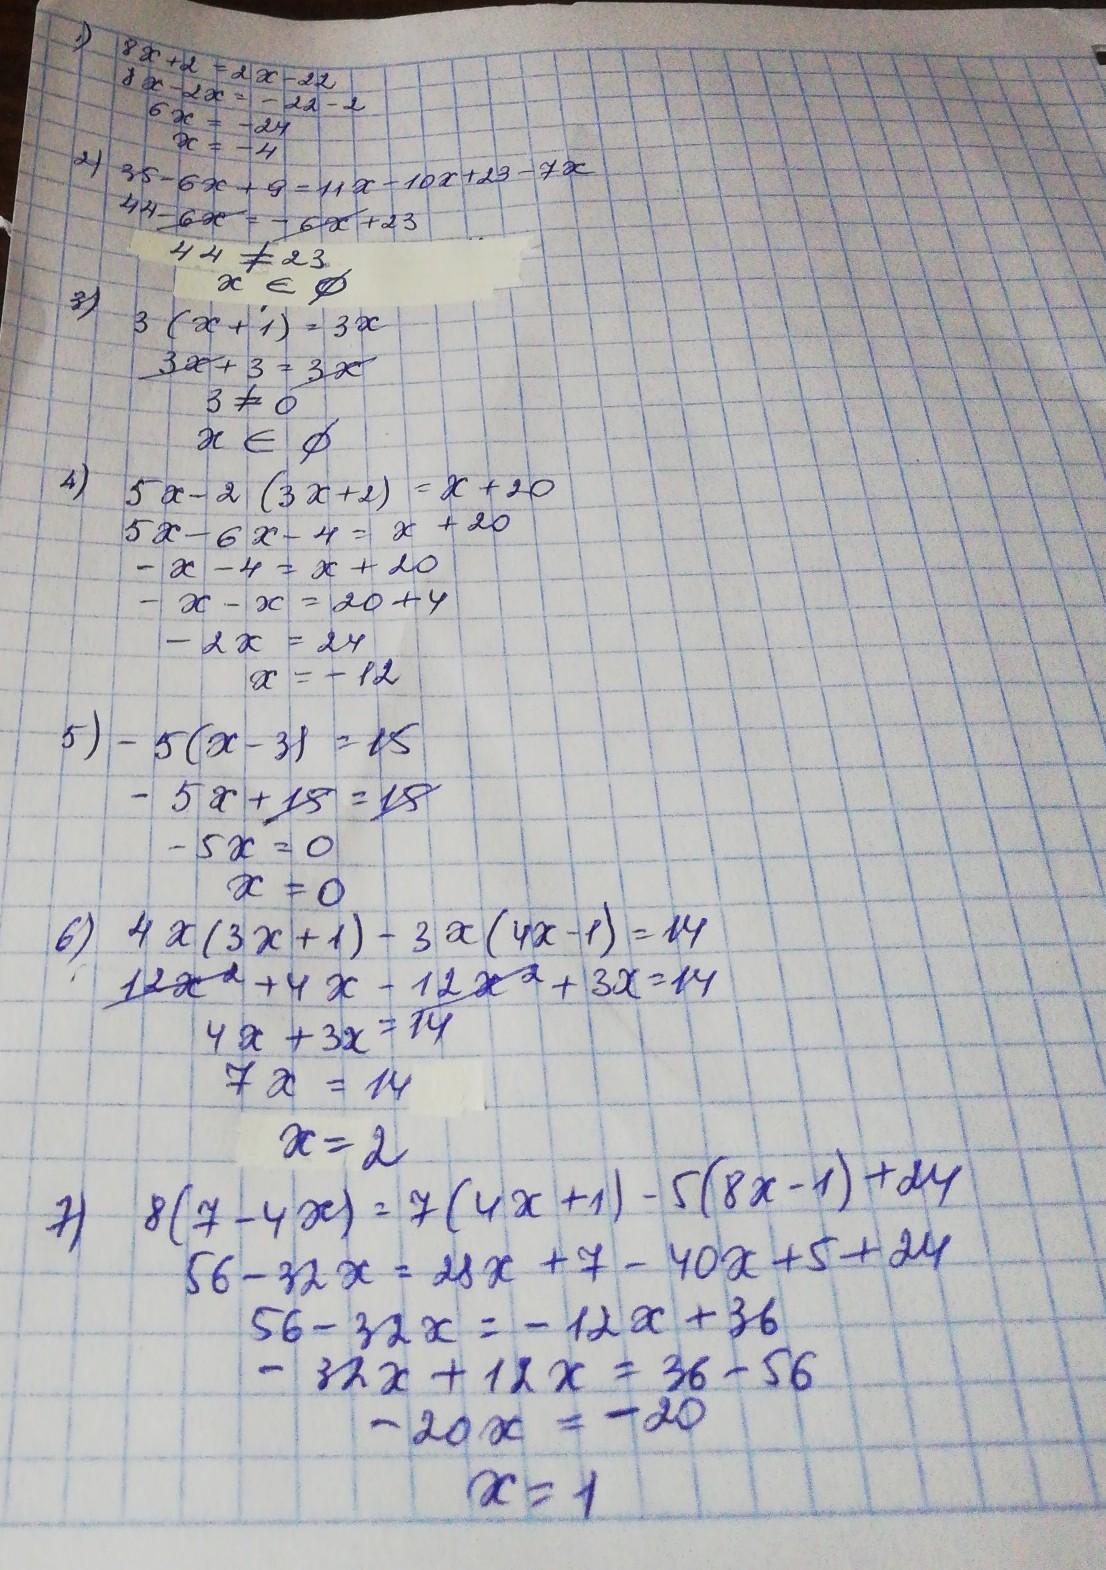 1) 8x+2=2x-22
8x-2x=-22-2
6x=-24
x=-4
2) 35-6x+9=11x-10x+23-7x
44-6x=-6x+23
44≠23
x∈∅
3) 3(x+1)=3x
3x+3=3x
3≠0
x∈∅
4) 5x-2(3x+2)=x+20
5x-6x-4=x+20
-x-4=x+20
-x-x=20+4
-2x=24
x=-12
5) -5(x-3)=15
-5x+15=15
-5x=0
x=0
6) 4x(3x+1)-3x(4x-1)=14
12x²+4x-12x²+3x=14
4x+3x=14
7x=14
x=2
7) 8(7-4x)=7(4x+1)-5(8x-1)+24
56-32x=28x+7-40x+5+24
56-32x=-12x+36
-32x+12x=36-56
-20x=-20
x=1